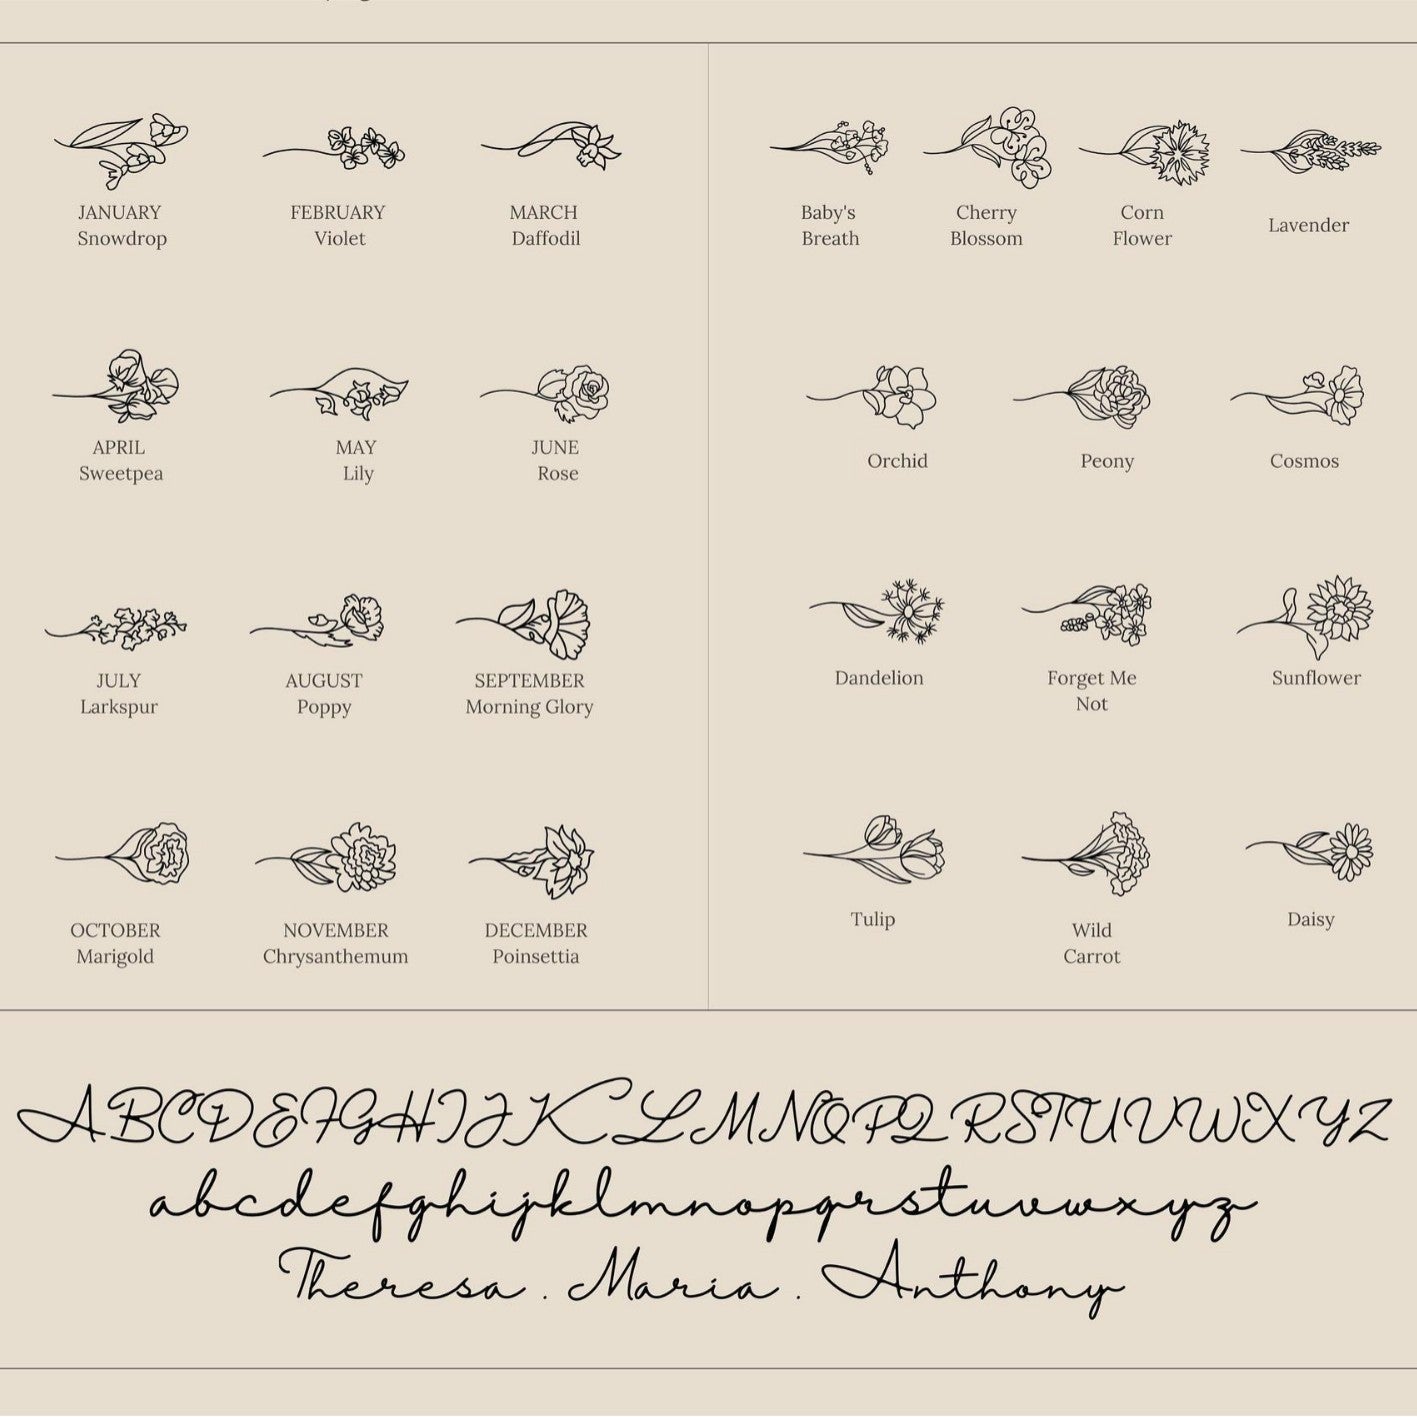 JANUARY
Snowdrop
FEBRUARY
Violet
MARCH
Daffodil
APRIL
Sweetpea
MAY
Lily
JUNE
Rose
JULY
Larkspur
AUGUST
Poppy
SEPTEMBER
Morning Glory
OCTOBER
Marigold
NOVEMBER
Chrysanthemum
DECEMBER
Poinsettia
Baby's
Breath
Cherry
Blossom
Corn
Flower
Lavender
Orchid
Peony
Cosmos
Dandelion
Forget Me
Not
Sunflower
Tulip
Wild
Carrot
Daisy
ABCDEFGHIJKLMNOPQRSTUVWXYZ
abcdefghijklmnopqrstuvwxyz
Theresa . Maria . Anthony